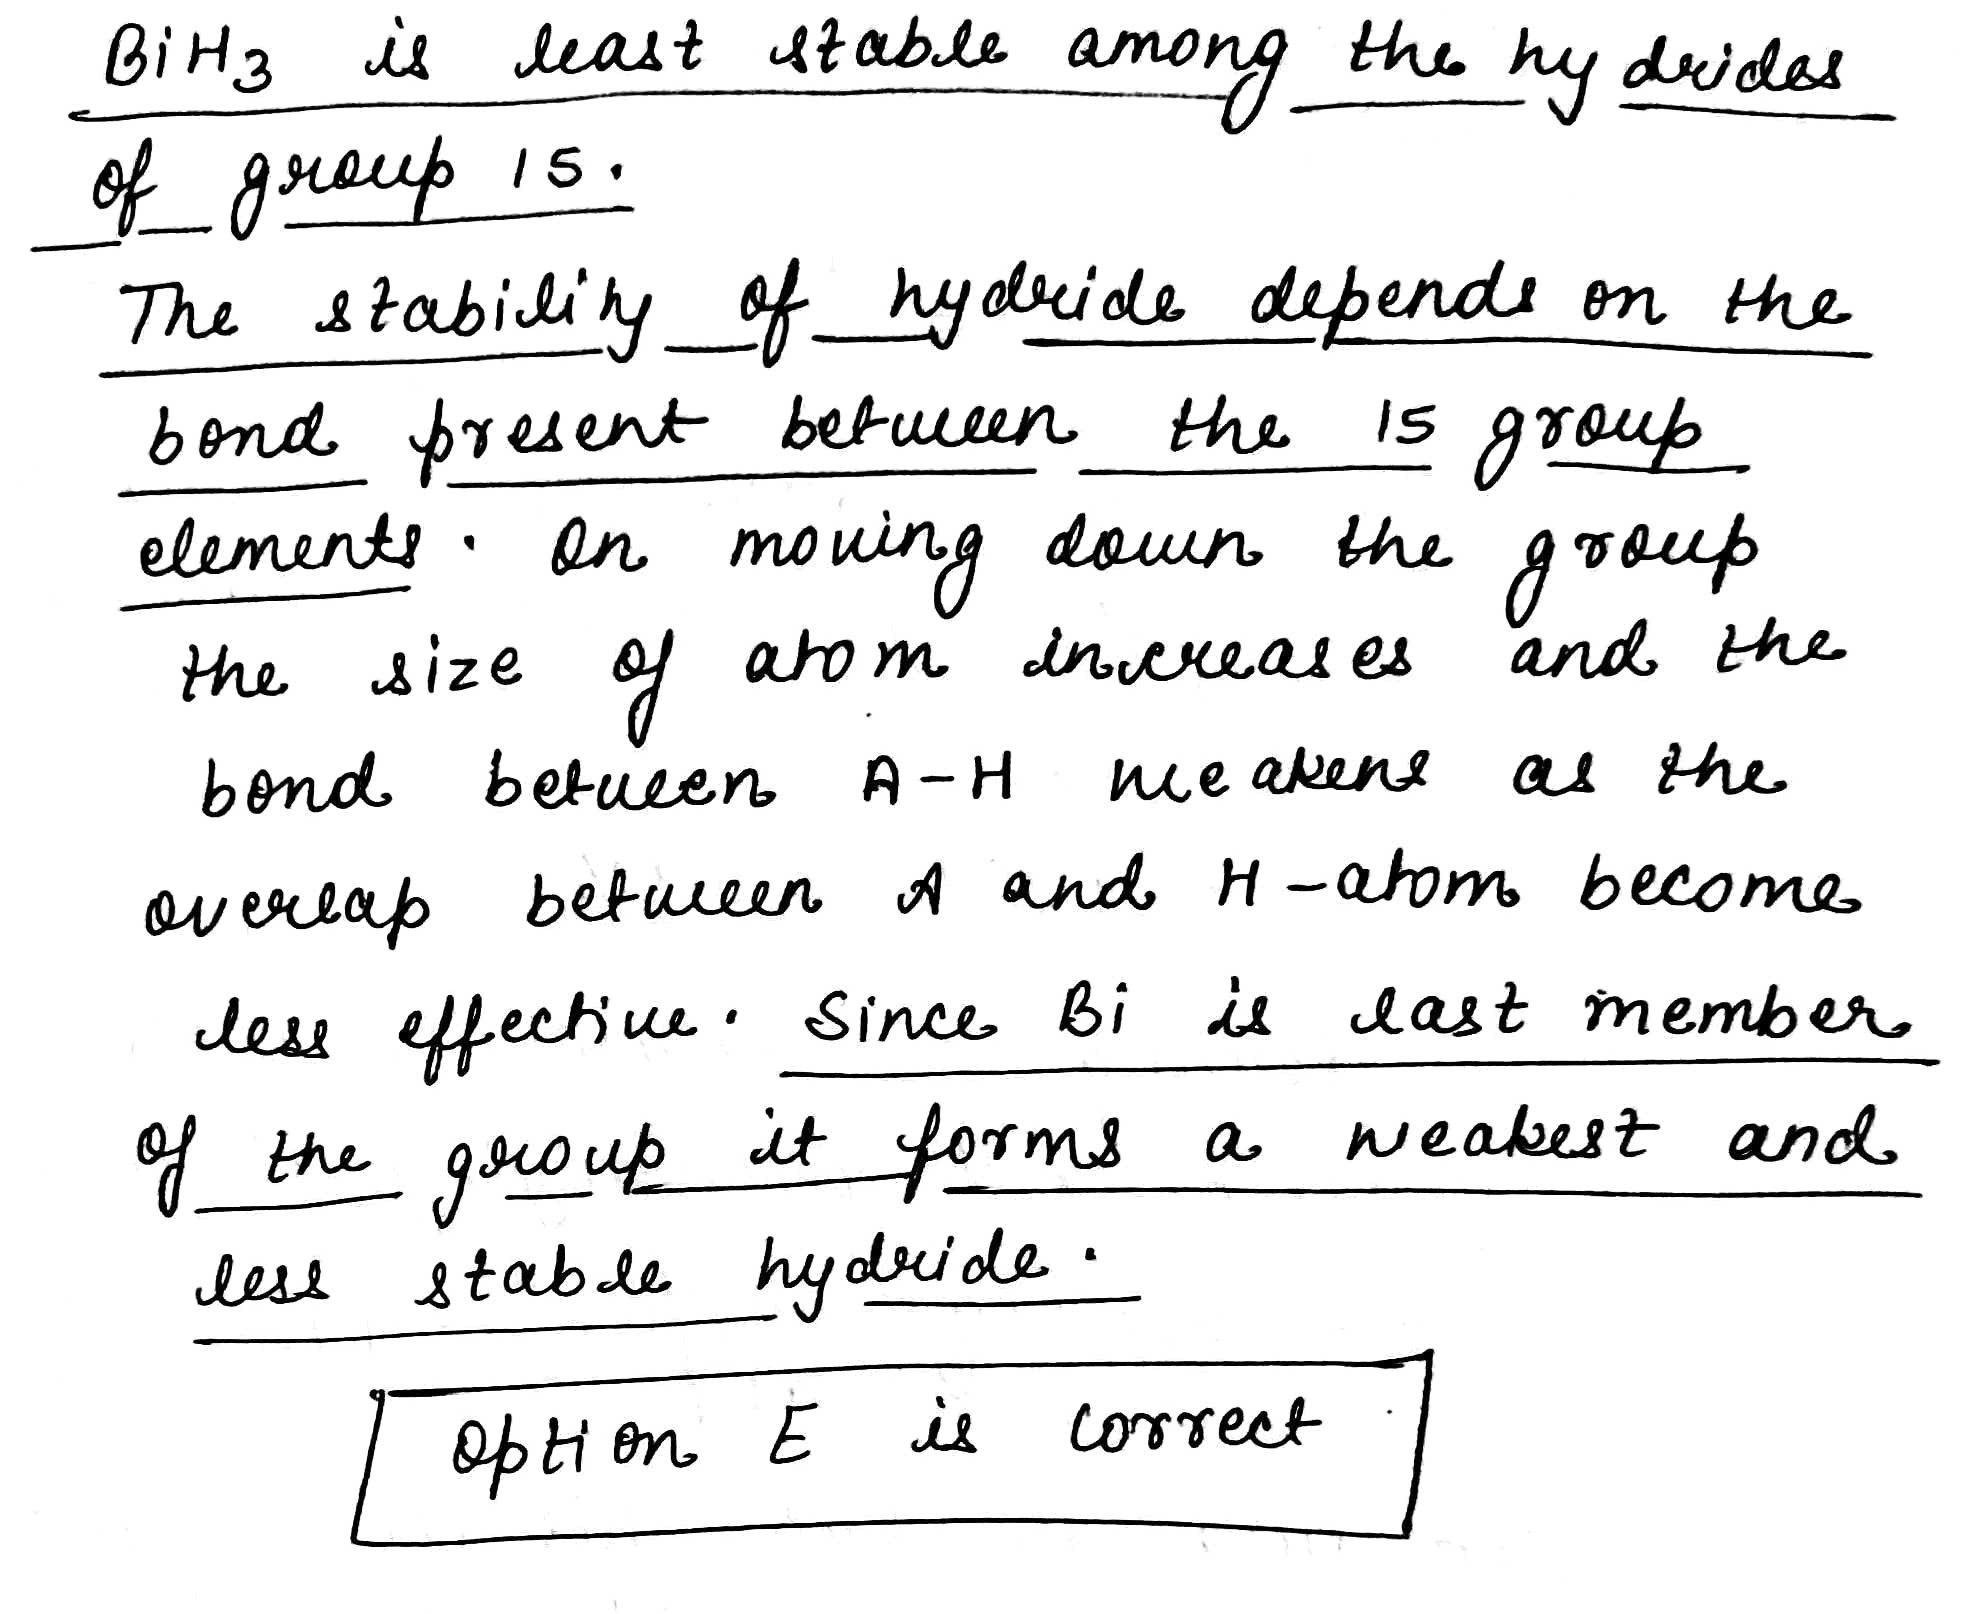 BiH3 is least stable among the hydrides
of group 15.
The stability of hydride depends on the
bond present between the 15 group
elements. On moving down the group
the size of atom increases and the
bond between A-H weakens as the
overlap between A and H-atom become
less effective. Since Bi is last member
of the group it forms a weakest and
less stable hydride.
Option E is correct